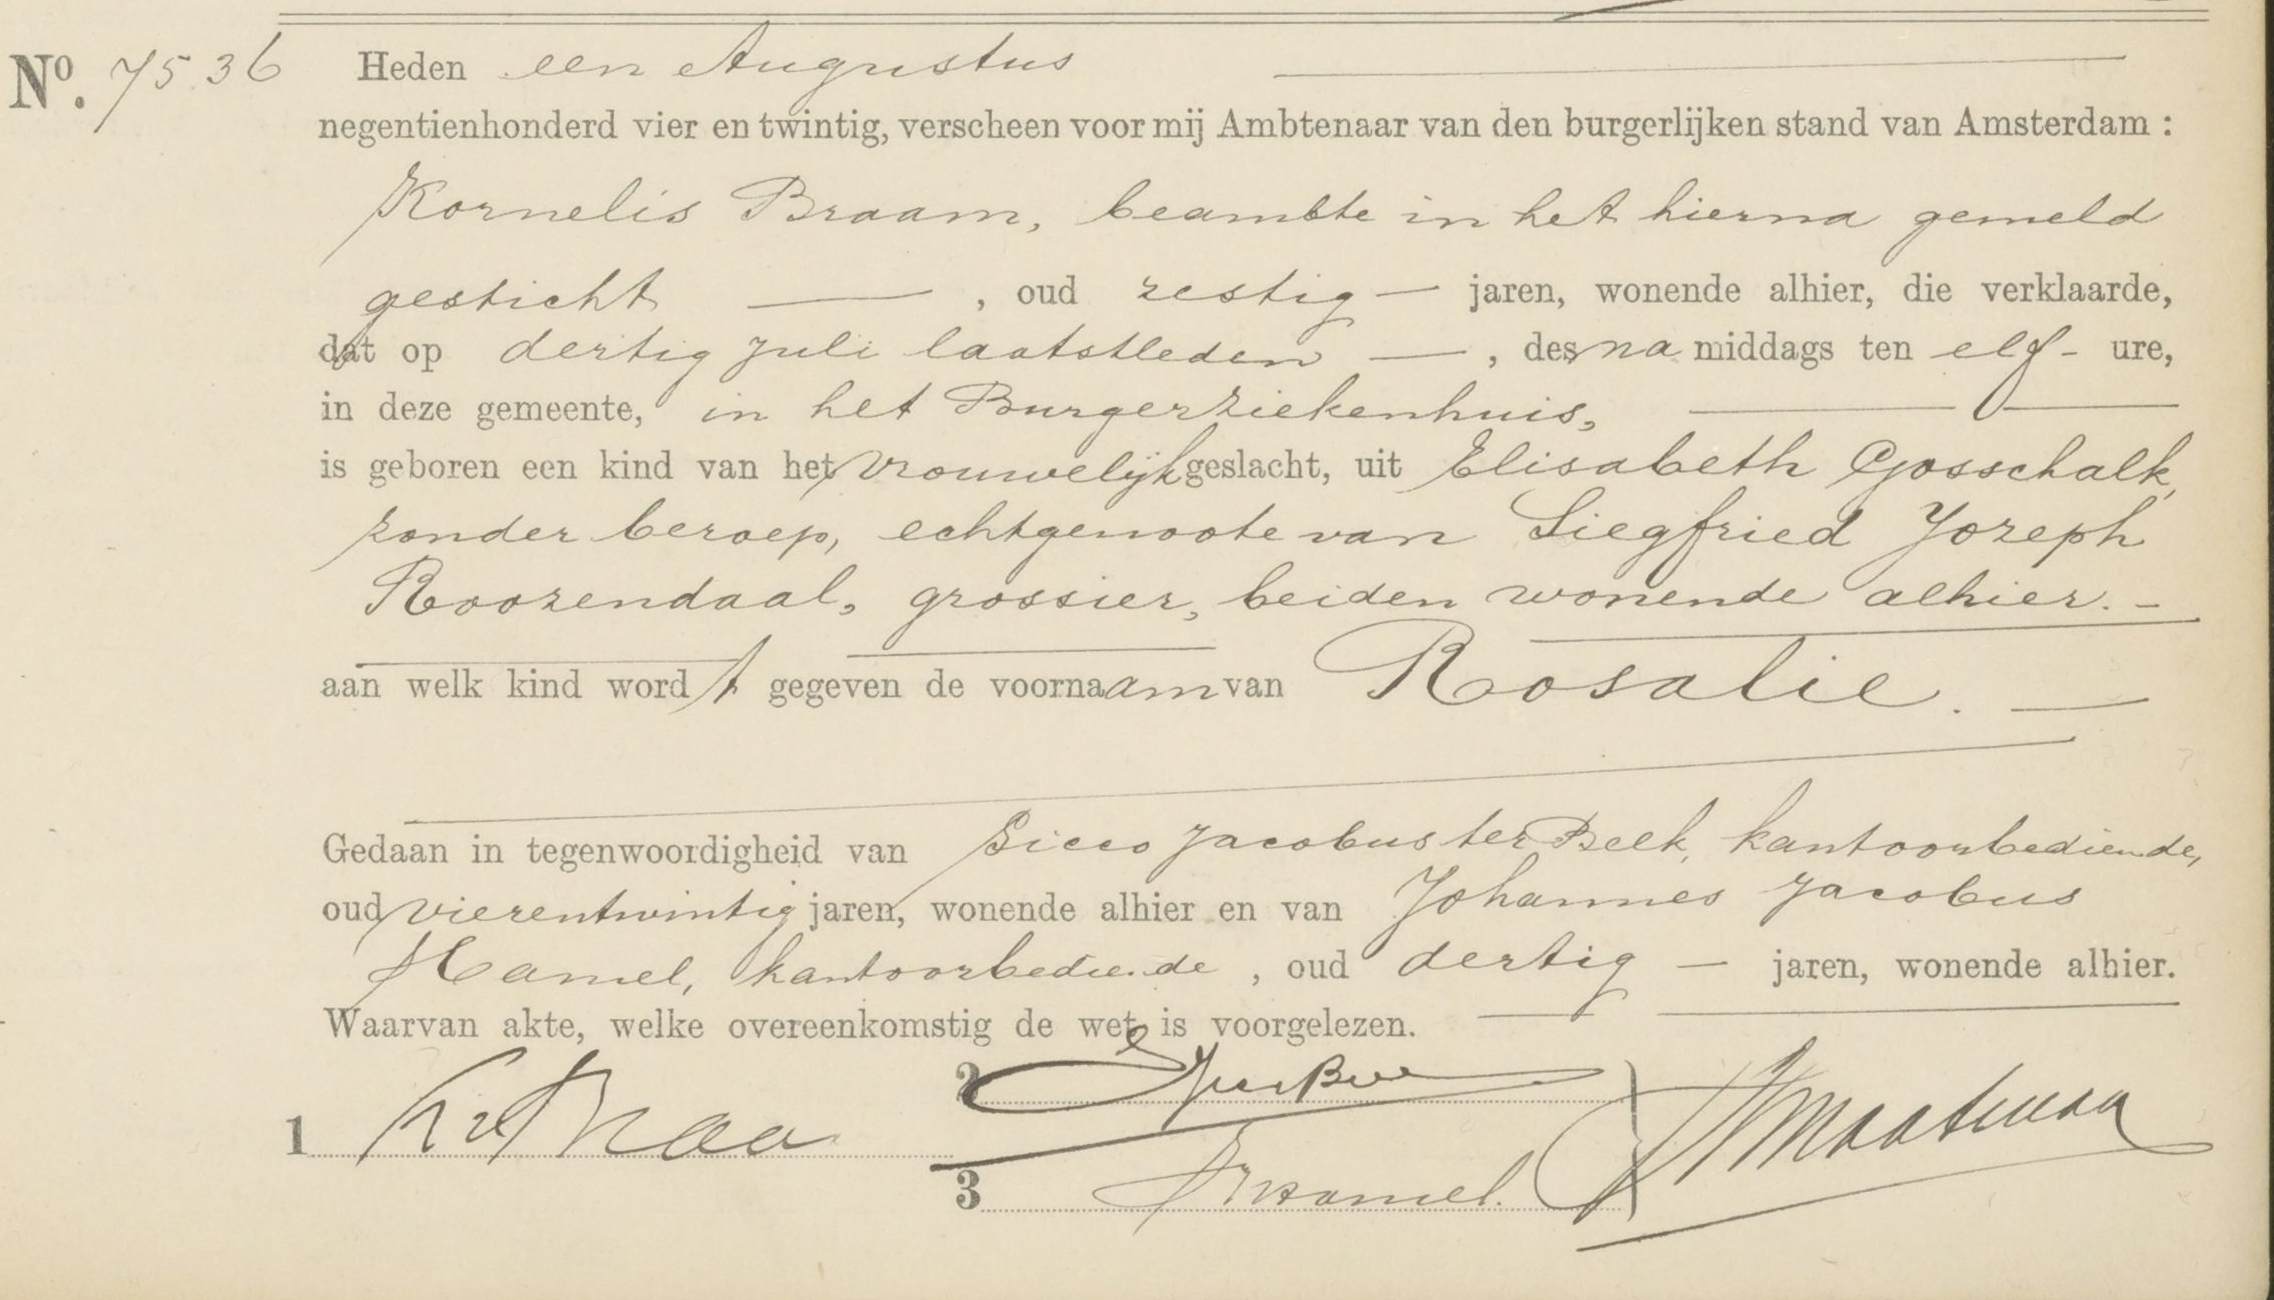 No. 7536 Heden een Augustus
negentienhonderd vier en twintig, verscheen voor mij Ambtenaar van den burgerlijken stand van Amsterdam :
Kornelis Braam, beambte in het hierna gemeld
gesticht —, oud zestig — jaren, wonende alhier, die verklaarde,
dat op dertig Juli laatstleden —, des na middags ten elf - ure,
in deze gemeente, in het Burgerziekenhuis,
is geboren een kind van het vrouwelijk geslacht, uit Elisabeth Gosschalk,
zonder beroep, echtgenoote van Siegfried Jozeph
Roozendaal, grossier, beiden wonende alhier. -
aan welk kind wordt gegeven de voornaam van Rosalie. —
Gedaan in tegenwoordigheid van Sicco Jacobus ter Beek, kantoorbediende,
oud vierentwintig jaren, wonende alhier en van Johannes Jacobus
Hamel, kantoorbediende, oud dertig — jaren, wonende alhier.
Waarvan akte, welke overeenkomstig de wet is voorgelezen.
2
1
3